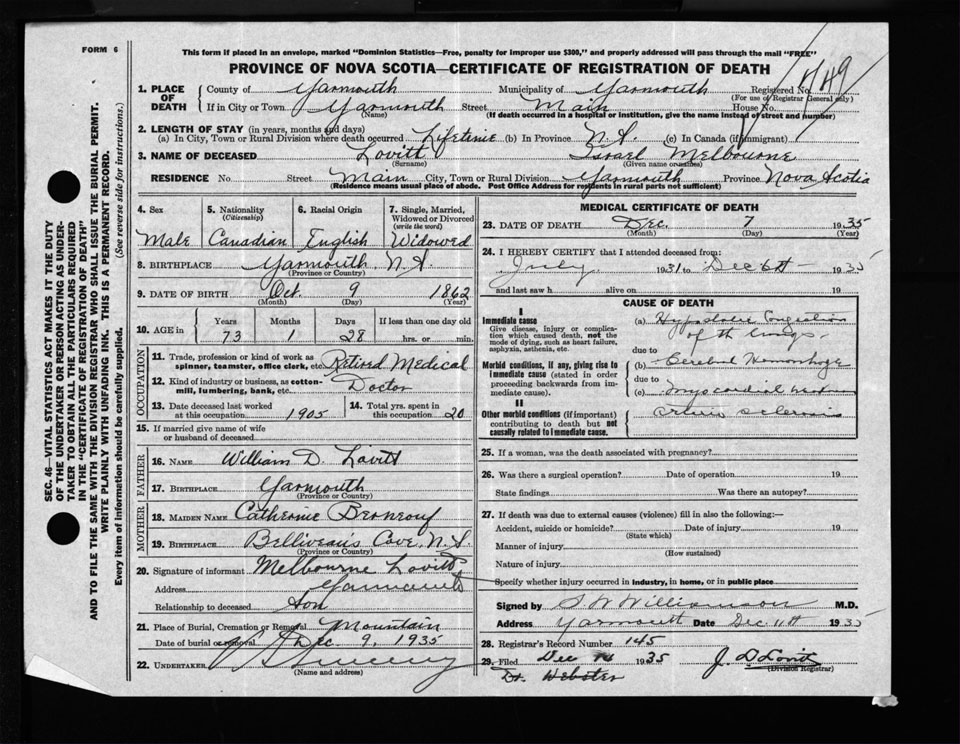 FORM 6
This form if placed in an envelope, marked "Dominion Statistics—Free, penalty for improper use $300," and properly addressed will pass through the mail "FREE"
PROVINCE OF NOVA SCOTIA—CERTIFICATE OF REGISTRATION OF DEATH
1. PLACE OF DEATH
County of Yarmouth Municipality of Yarmouth Registered No.
(For use of Registrar General only)
If in City or Town Yarmouth Street Main House No.
(Name) (If death occurred in a hospital or institution, give the name instead of street and number)
2. LENGTH OF STAY (in years, months and days)
(a) In City, Town or Rural Division where death occurred Lifetime (b) In Province N.S. (c) In Canada (if immigrant)
3. NAME OF DECEASED Lovitt Israel Melbourne
(Surname) (Given name or names)
RESIDENCE No. Street Main City, Town or Rural Division Yarmouth Province Nova Scotia
(Residence means usual place of abode. Post Office Address for residents in rural parts not sufficient)
4. Sex 5. Nationality (Citizenship) 6. Racial Origin 7. Single, Married, Widowed or Divorced (write the word)
Male Canadian English Widowed
8. BIRTHPLACE Yarmouth, N.S.
(Province or Country)
9. DATE OF BIRTH Oct. 9 1862
(Month) (Day) (Year)
10. AGE in Years Months Days If less than one day old
73 1 28 hrs. or min.
OCCUPATION
11. Trade, profession or kind of work as spinner, teamster, office clerk, etc. Retired Medical
12. Kind of industry or business, as cotton-mill, lumbering, bank, etc. Doctor
13. Date deceased last worked at this occupation 1905 14. Total yrs. spent in this occupation 20
15. If married give name of wife or husband of deceased
FATHER
16. NAME William D. Lovitt
17. BIRTHPLACE Yarmouth
(Province or Country)
MOTHER
18. MAIDEN NAME Catherine
19. BIRTHPLACE Belliveau's Cove, N.S.
(Province or Country)
20. Signature of informant Melbourne Lovitt
Address Yarmouth
Relationship to deceased Son
21. Place of Burial, Cremation or Removal Mountain
Date of burial or removal Dec 9, 1935
22. UNDERTAKER
(Name and address)
MEDICAL CERTIFICATE OF DEATH
23. DATE OF DEATH Dec. 7 1935
(Month) (Day) (Year)
24. I HEREBY CERTIFY that I attended deceased from:
July 1931 to Dec 6th 1935
and last saw h alive on 19
CAUSE OF DEATH
I
Immediate cause
Give disease, injury or complication which caused death, not the mode of dying, such as heart failure, asphyxia, asthenia, etc.
(a) Hypostatic Congestion
of the Lungs
due to
Morbid conditions, if any, giving rise to immediate cause (stated in order proceeding backwards from immediate cause).
(b) Cerebral Hemorrhage
due to
(c) myocardial
II
Other morbid conditions (if important) contributing to death but not causally related to immediate cause.
arterio sclerosis
25. If a woman, was the death associated with pregnancy?
26. Was there a surgical operation? Date of operation 19
State findings Was there an autopsy?
27. If death was due to external causes (violence) fill in also the following:—
Accident, suicide or homicide? Date of injury 19
(State which)
Manner of injury
(How sustained)
Nature of injury
Specify whether injury occurred in industry, in home, or in public place
Signed by S W Williamson M.D.
Address Yarmouth Date Dec 11th 1935
28. Registrar's Record Number 145
29. Filed Dec 1935
(Division Registrar)
Dr. Webster
SEC. 46—VITAL STATISTICS ACT MAKES IT THE DUTY
OF THE UNDERTAKER OR PERSON ACTING AS UNDER-
TAKER TO OBTAIN ALL THE PARTICULARS REQUIRED
IN THE "CERTIFICATE OF REGISTRATION OF DEATH"
AND TO FILE THE SAME WITH THE DIVISION REGISTRAR WHO SHALL ISSUE THE BURIAL PERMIT.
WRITE PLAINLY WITH UNFADING INK. THIS IS A PERMANENT RECORD.
Every item of information should be carefully supplied. (See reverse side for instructions.)